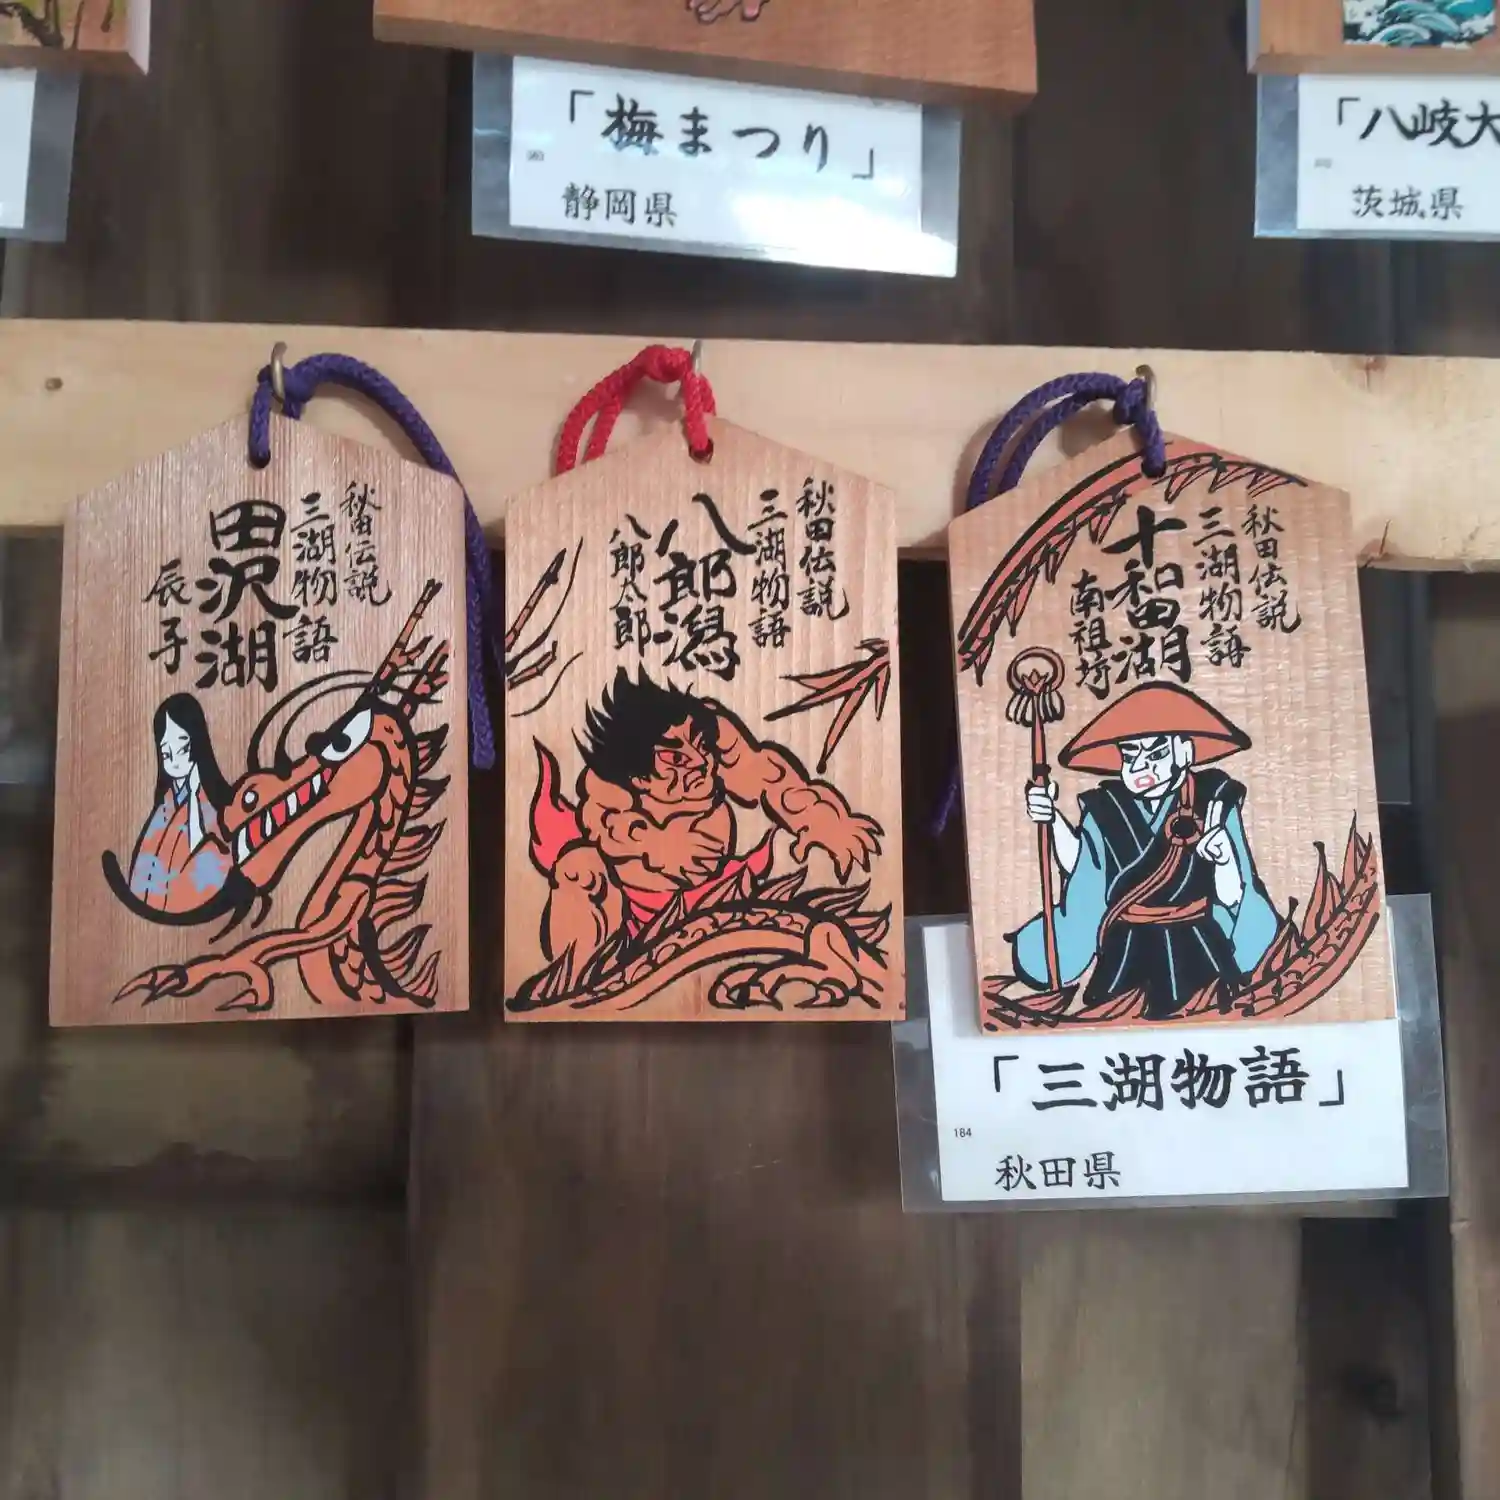 「梅まつり」
静岡県
「八岐大
茨城県
秋田伝説
三湖物語
田沢湖
辰子
秋田伝説
三湖物語
八郎潟
八郎太郎
秋田伝説
三湖物語
十和田湖
南祖坊
「三湖物語」
184
秋田県